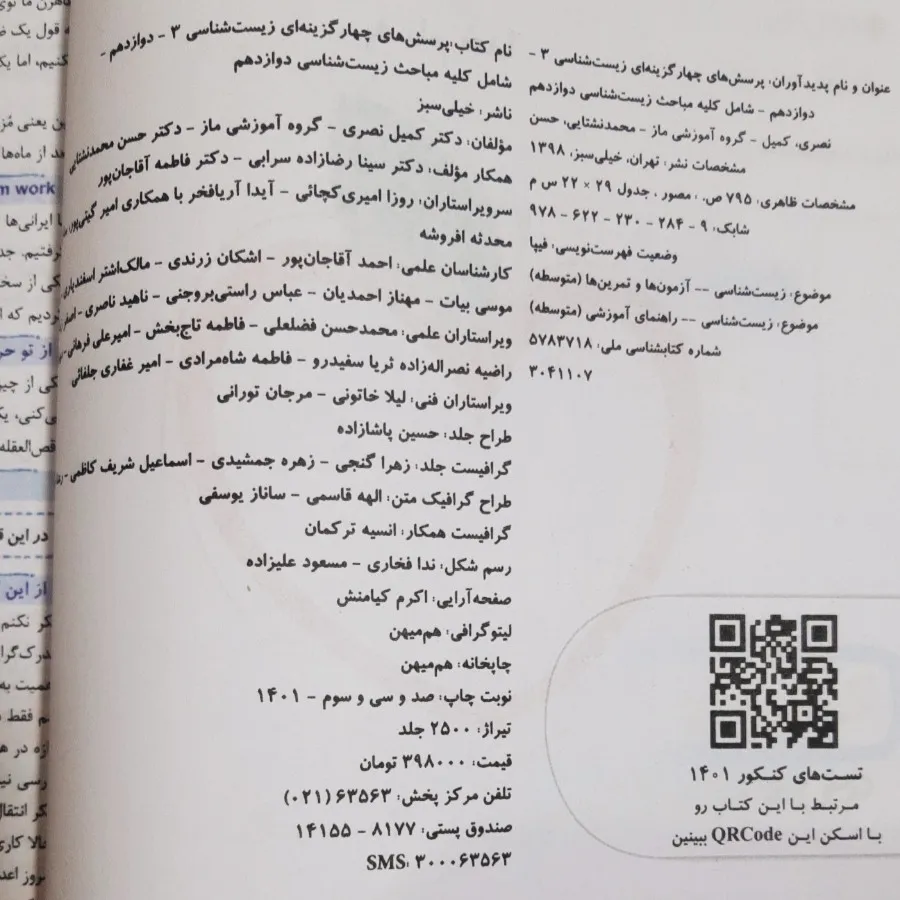 عنوان و نام پدیدآوران: پرسش‌های چهارگزینه‌ای زیست‌شناسی ۳ -
دوازدهم - شامل کلیه مباحث زیست‌شناسی دوازدهم
نصری، کمیل - گروه آموزشی ماز - محمدنشتایی، حسن
مشخصات نشر: تهران، خیلی‌سبز، ۱۳۹۸
مشخصات ظاهری: ۷۹۵ ص.، مصور، جدول ۲۹ × ۲۲ س م
شابک: ۹ - ۲۸۴ - ۲۳۰ - ۶۲۲ - ۹۷۸
وضعیت فهرست‌نویسی: فیپا
موضوع: زیست‌شناسی -- آزمون‌ها و تمرین‌ها (متوسطه)
موضوع: زیست‌شناسی -- راهنمای آموزشی (متوسطه)
شماره کتابشناسی ملی: ۵۷۸۳۷۱۸
۳۰۴۱۱۰۷
نام کتاب: پرسش‌های چهارگزینه‌ای زیست‌شناسی ۳ - دوازدهم -
شامل کلیه مباحث زیست‌شناسی دوازدهم
ناشر: خیلی‌سبز
مؤلفان: دکتر کمیل نصری - گروه آموزشی ماز - دکتر حسن محمدنشتایی
همکار مؤلف: دکتر سینا رضازاده سرابی - دکتر فاطمه آقاجان‌پور
سرویراستاران: روزا امیری‌کچائی - آیدا آریافخر با همکاری امیر گیتی‌پور،
محدثه افروشه
کارشناسان علمی: احمد آقاجان‌پور - اشکان زرندی - مالک‌اشتر اسفندیاری
موسی بیات - مهناز احمدیان - عباس راستی‌بروجنی - ناهید ناصری -
ویراستاران علمی: محمدحسن فضلعلی - فاطمه تاج‌بخش - امیرعلی فرهانی -
راضیه نصراله‌زاده ثریا سفیدرو - فاطمه شاه‌مرادی - امیر غفاری جلفائی
ویراستاران فنی: لیلا خاتونی - مرجان تورانی
طراح جلد: حسین پاشازاده
گرافیست جلد: زهرا گنجی - زهره جمشیدی - اسماعیل شریف کاظمی -
طراح گرافیک متن: الهه قاسمی - ساناز یوسفی
گرافیست همکار: انسیه ترکمان
رسم شکل: ندا فخاری - مسعود علیزاده
صفحه‌آرایی: اکرم کیامنش
لیتوگرافی: هم‌میهن
چاپخانه: هم‌میهن
نوبت چاپ: صد و سی و سوم - ۱۴۰۱
تیراژ: ۲۵۰۰ جلد
قیمت: ۳۹۸۰۰۰ تومان
تلفن مرکز پخش: ۶۳۵۶۳ (۰۲۱)
صندوق پستی: ۸۱۷۷ - ۱۴۱۵۵
SMS: ۳۰۰۰۶۳۵۶۳
تست‌های کنکور ۱۴۰۱
مرتبط با این کتاب رو
با اسکن این QRCode ببینین